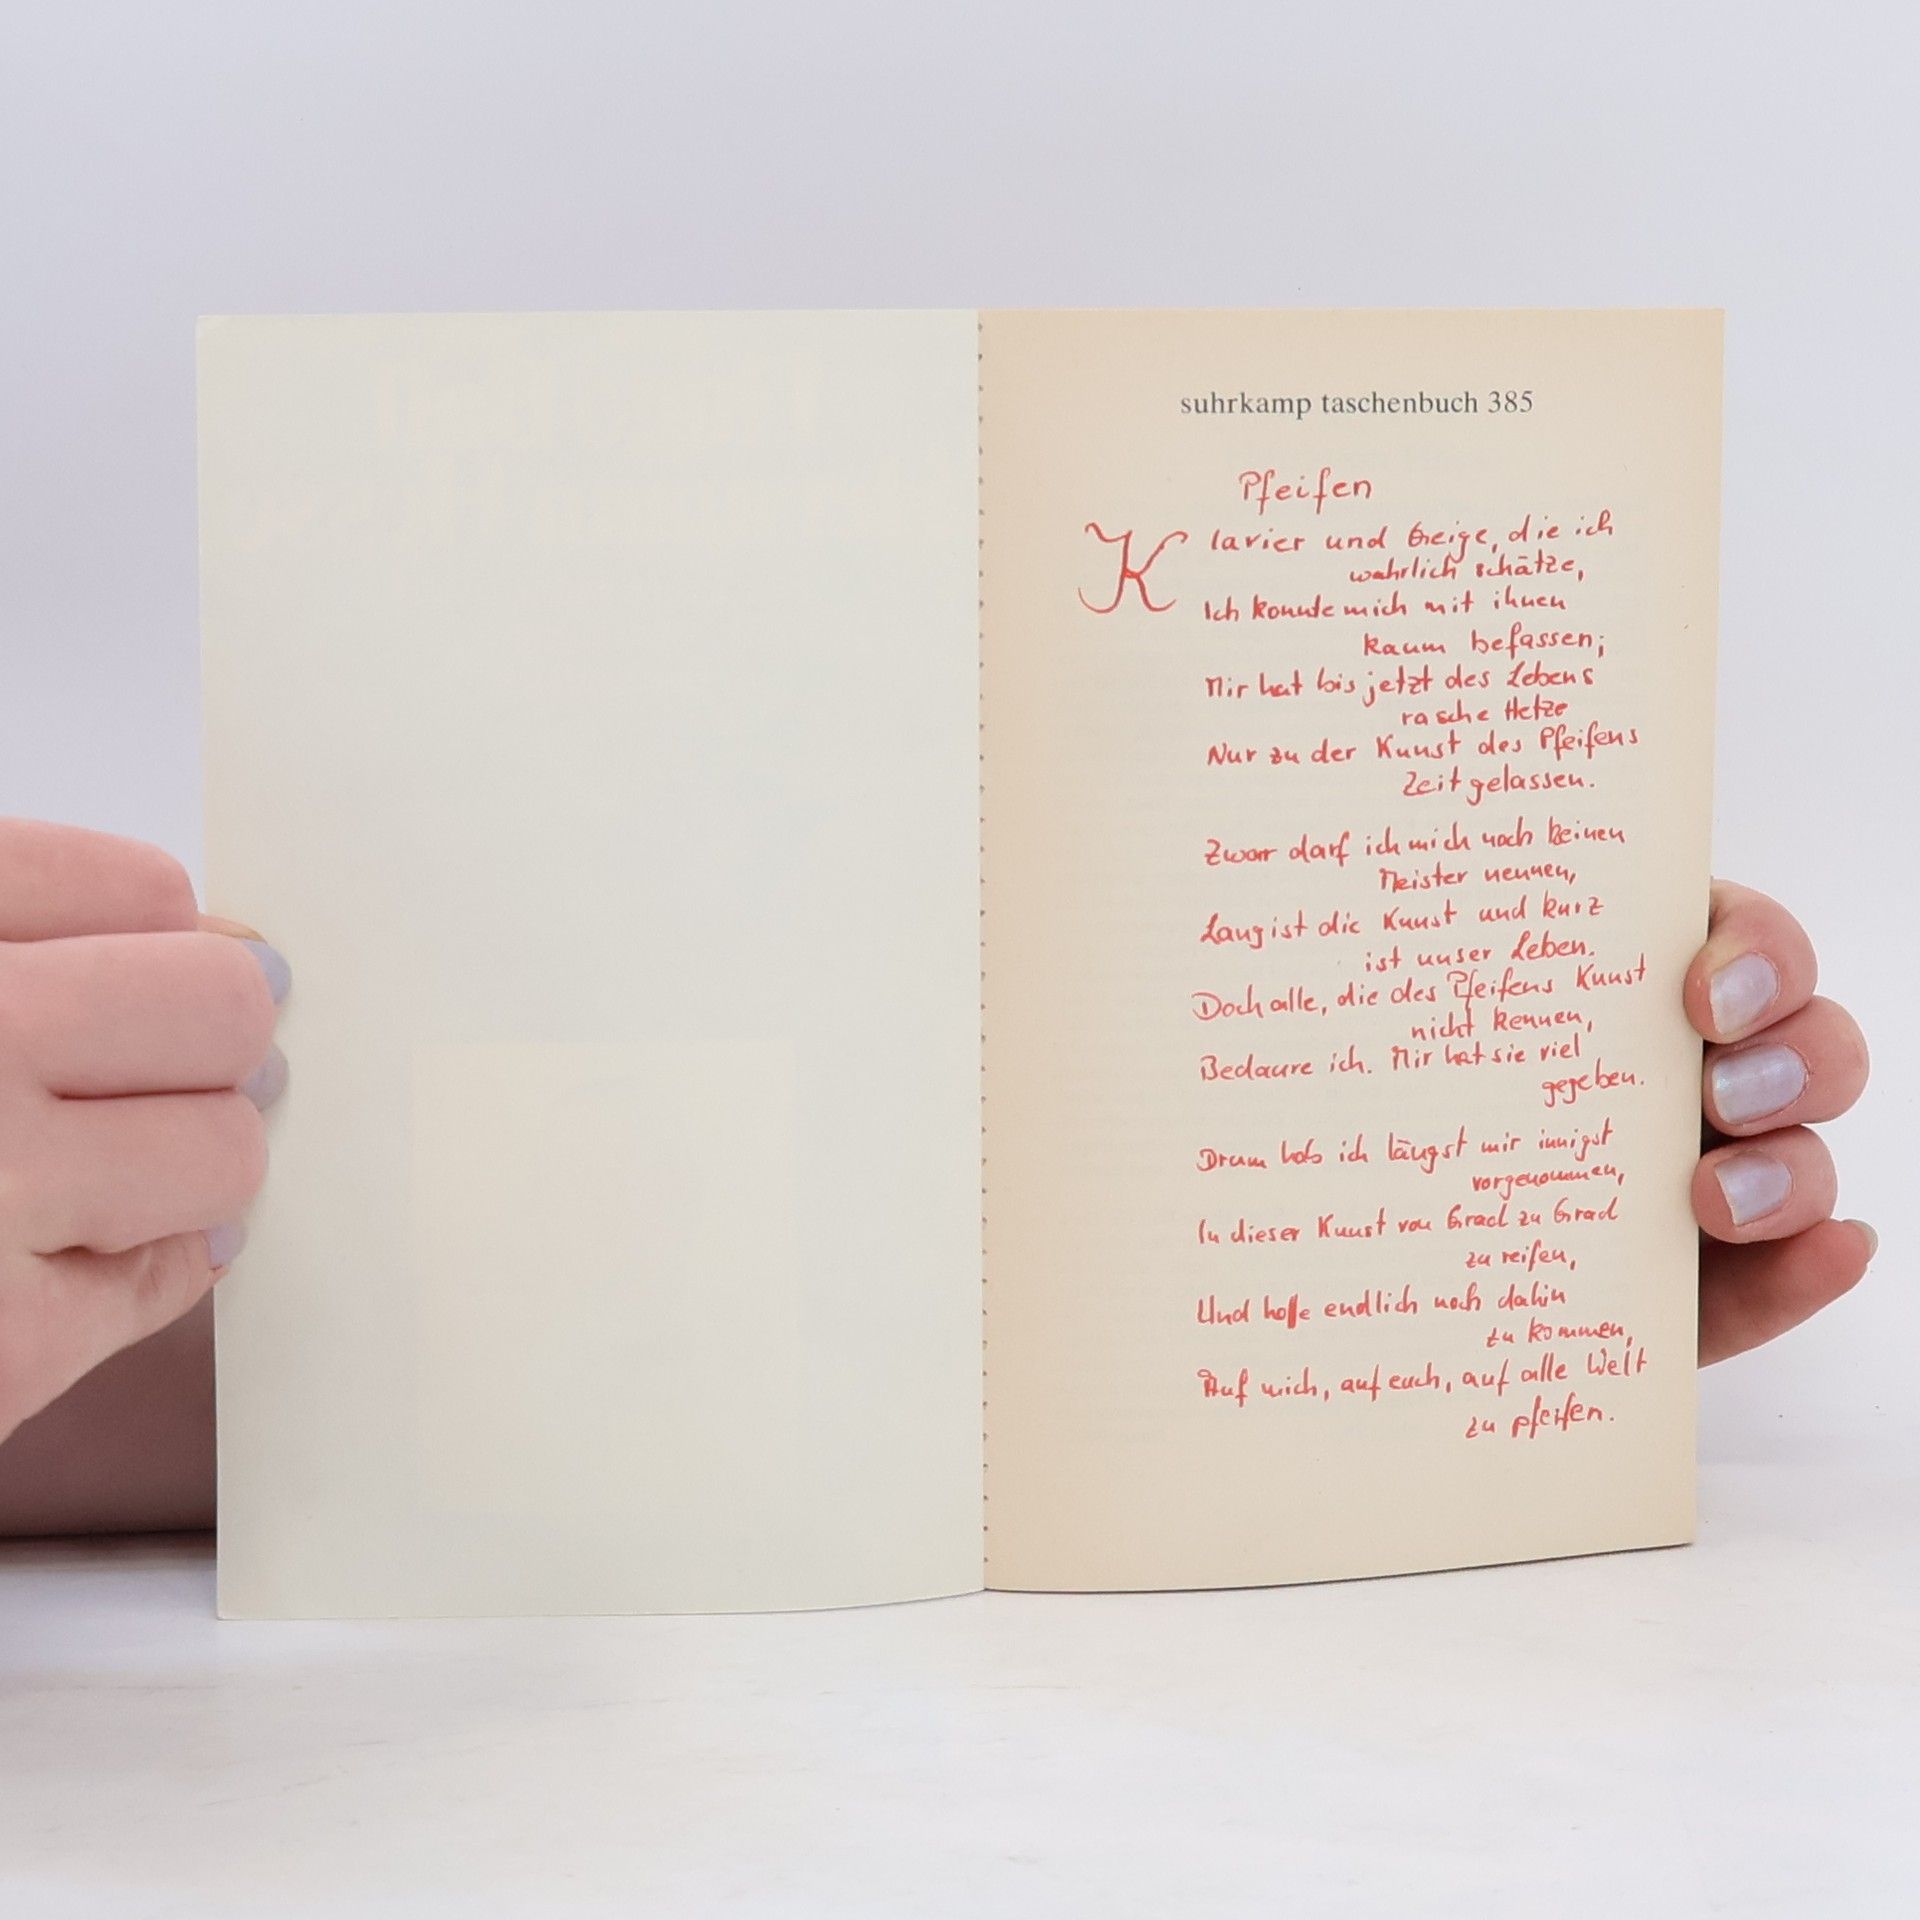 suhrkamp taschenbuch 385
Pfeifen
Klavier und Geige, die ich
wahrlich schätze,
Ich konnte mich mit ihnen
kaum befassen;
Mir hat bis jetzt des Lebens
rasche Hetze
Nur zu der Kunst des Pfeifens
Zeit gelassen.
Zwar darf ich mich noch keinen
Meister nennen,
Lang ist die Kunst und kurz
ist unser Leben.
Doch alle, die des Pfeifens Kunst
nicht kennen,
Bedaure ich. Mir hat sie viel
gegeben.
Drum hab ich längst mir innigst
vorgenommen,
In dieser Kunst von Grad zu Grad
zu reifen,
Und hoffe endlich noch dahin
zu kommen,
Auf mich, auf euch, auf alle Welt
zu pfeifen.